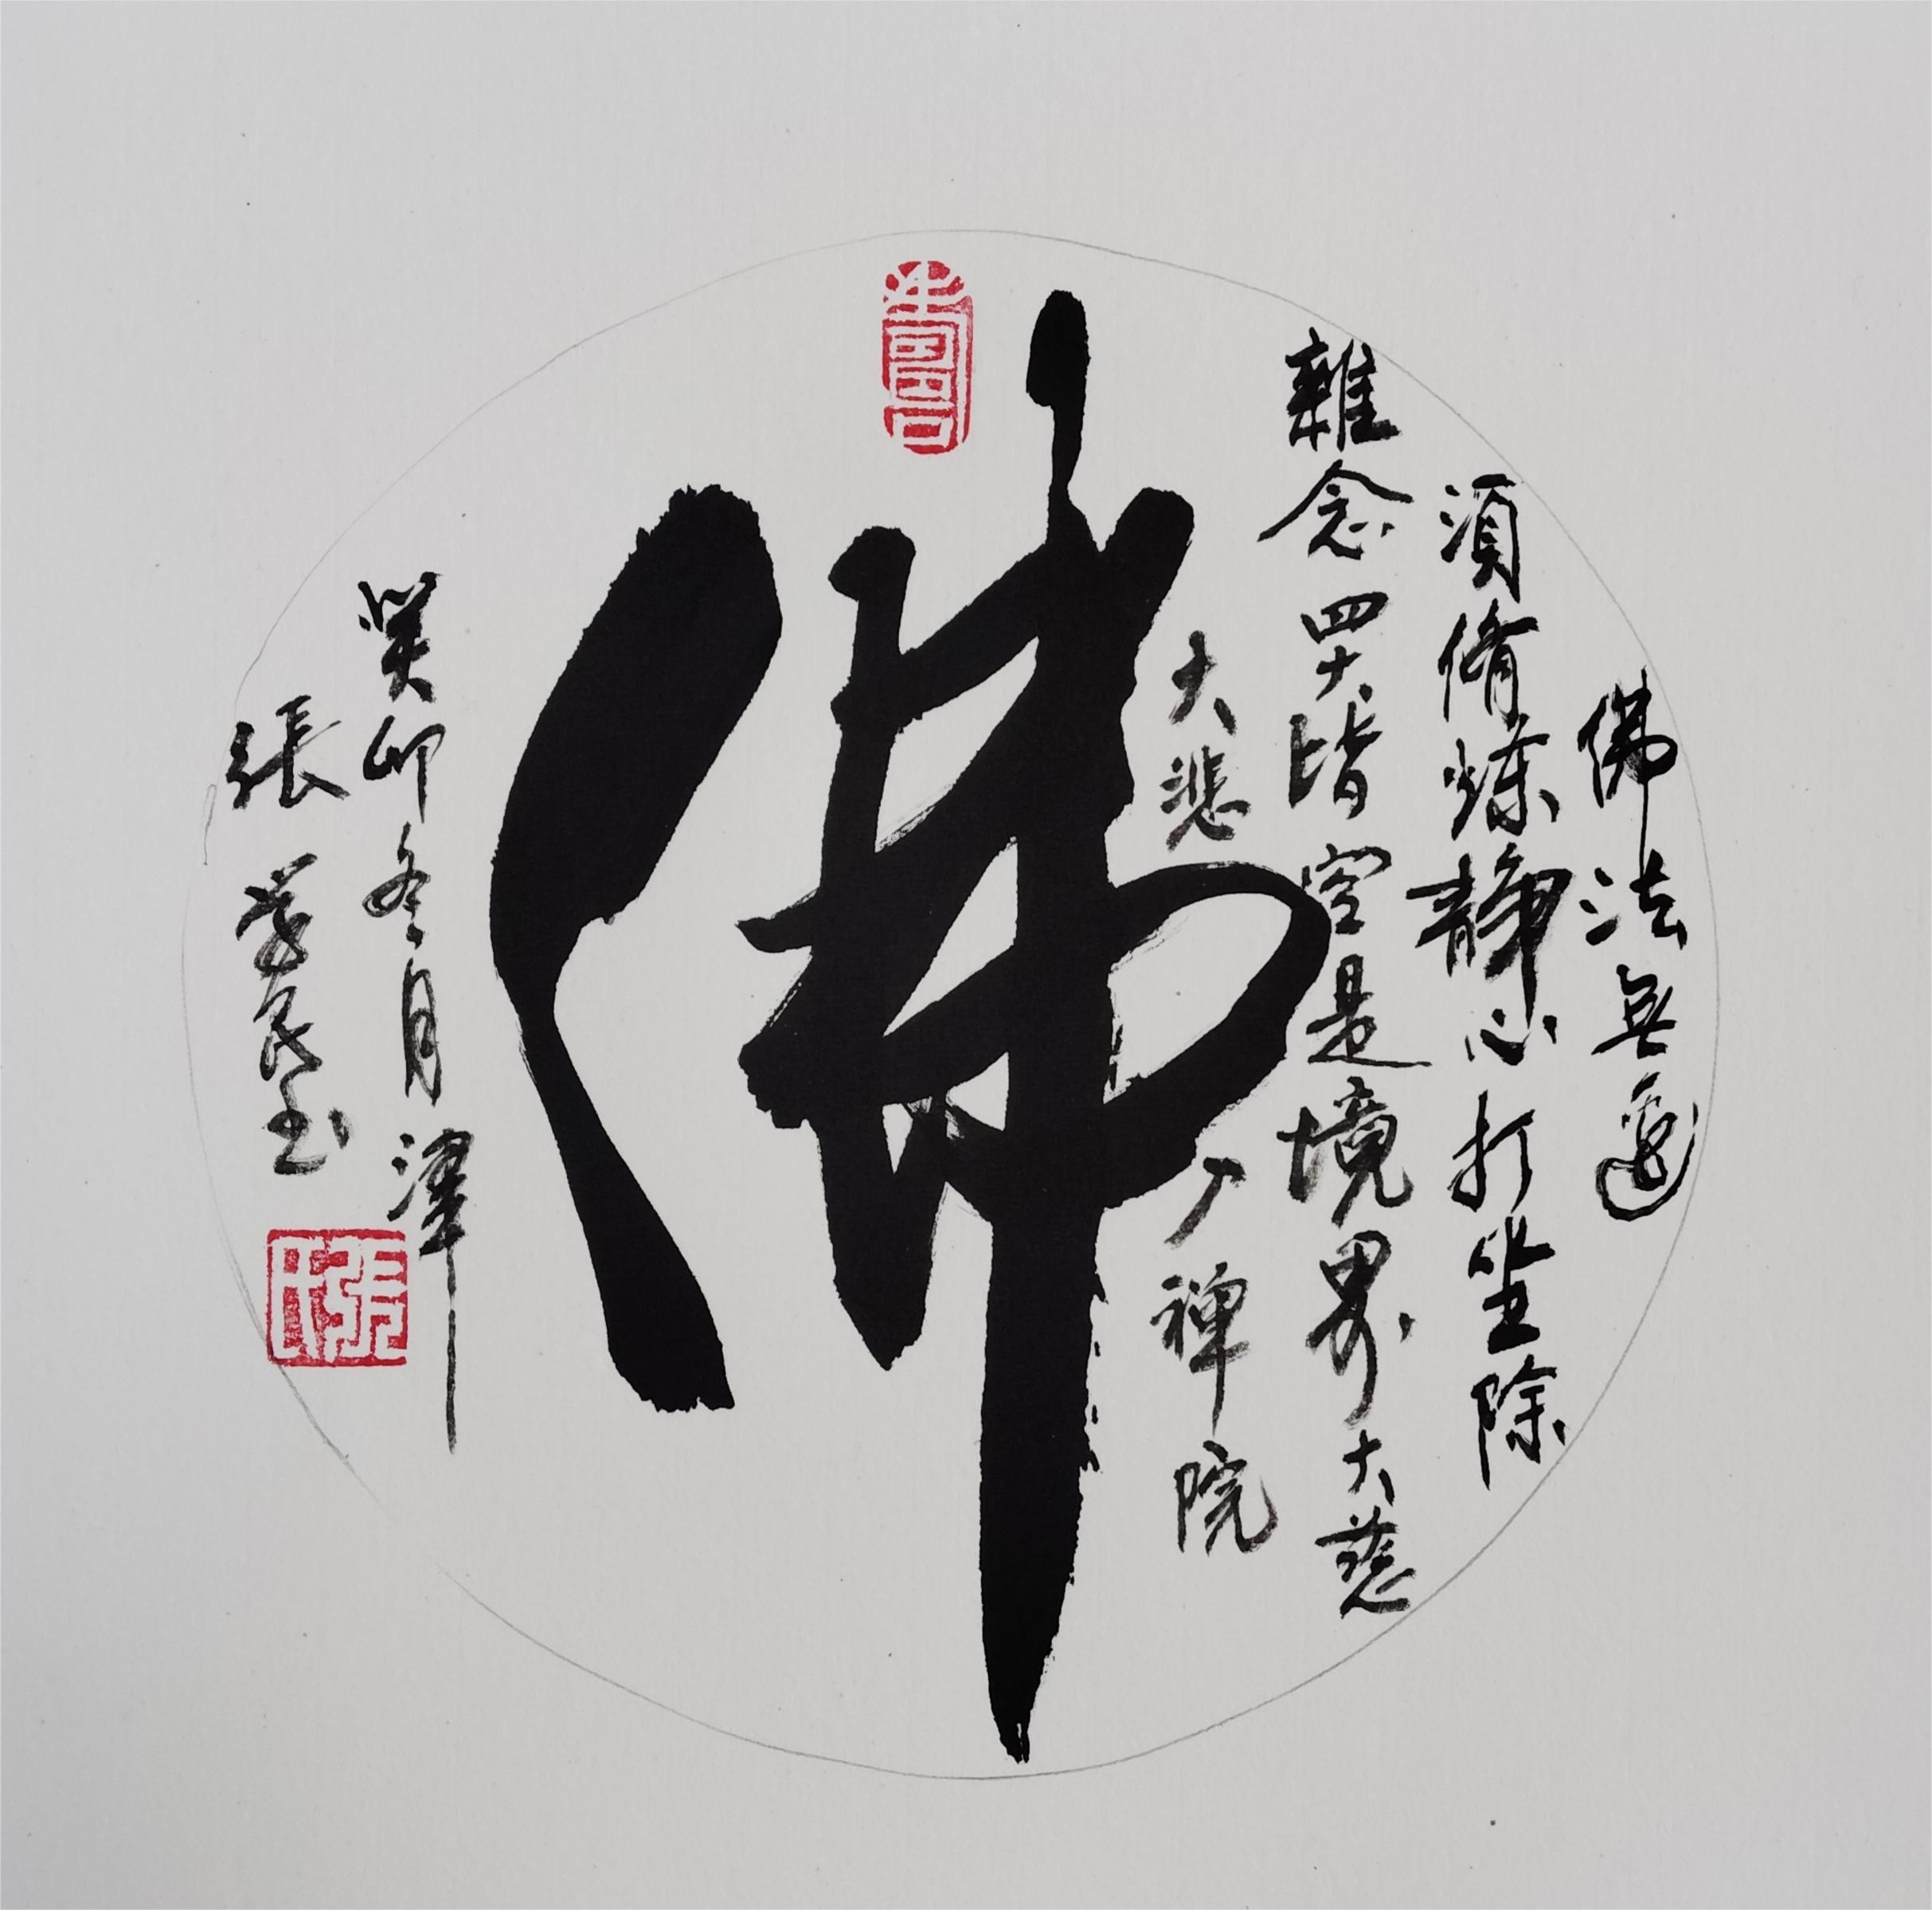 佛法無邊
須脩煉靜心打坐除
雜念四大皆空是境界大慈
大悲入禪院
佛
癸卯冬月津
張学民书